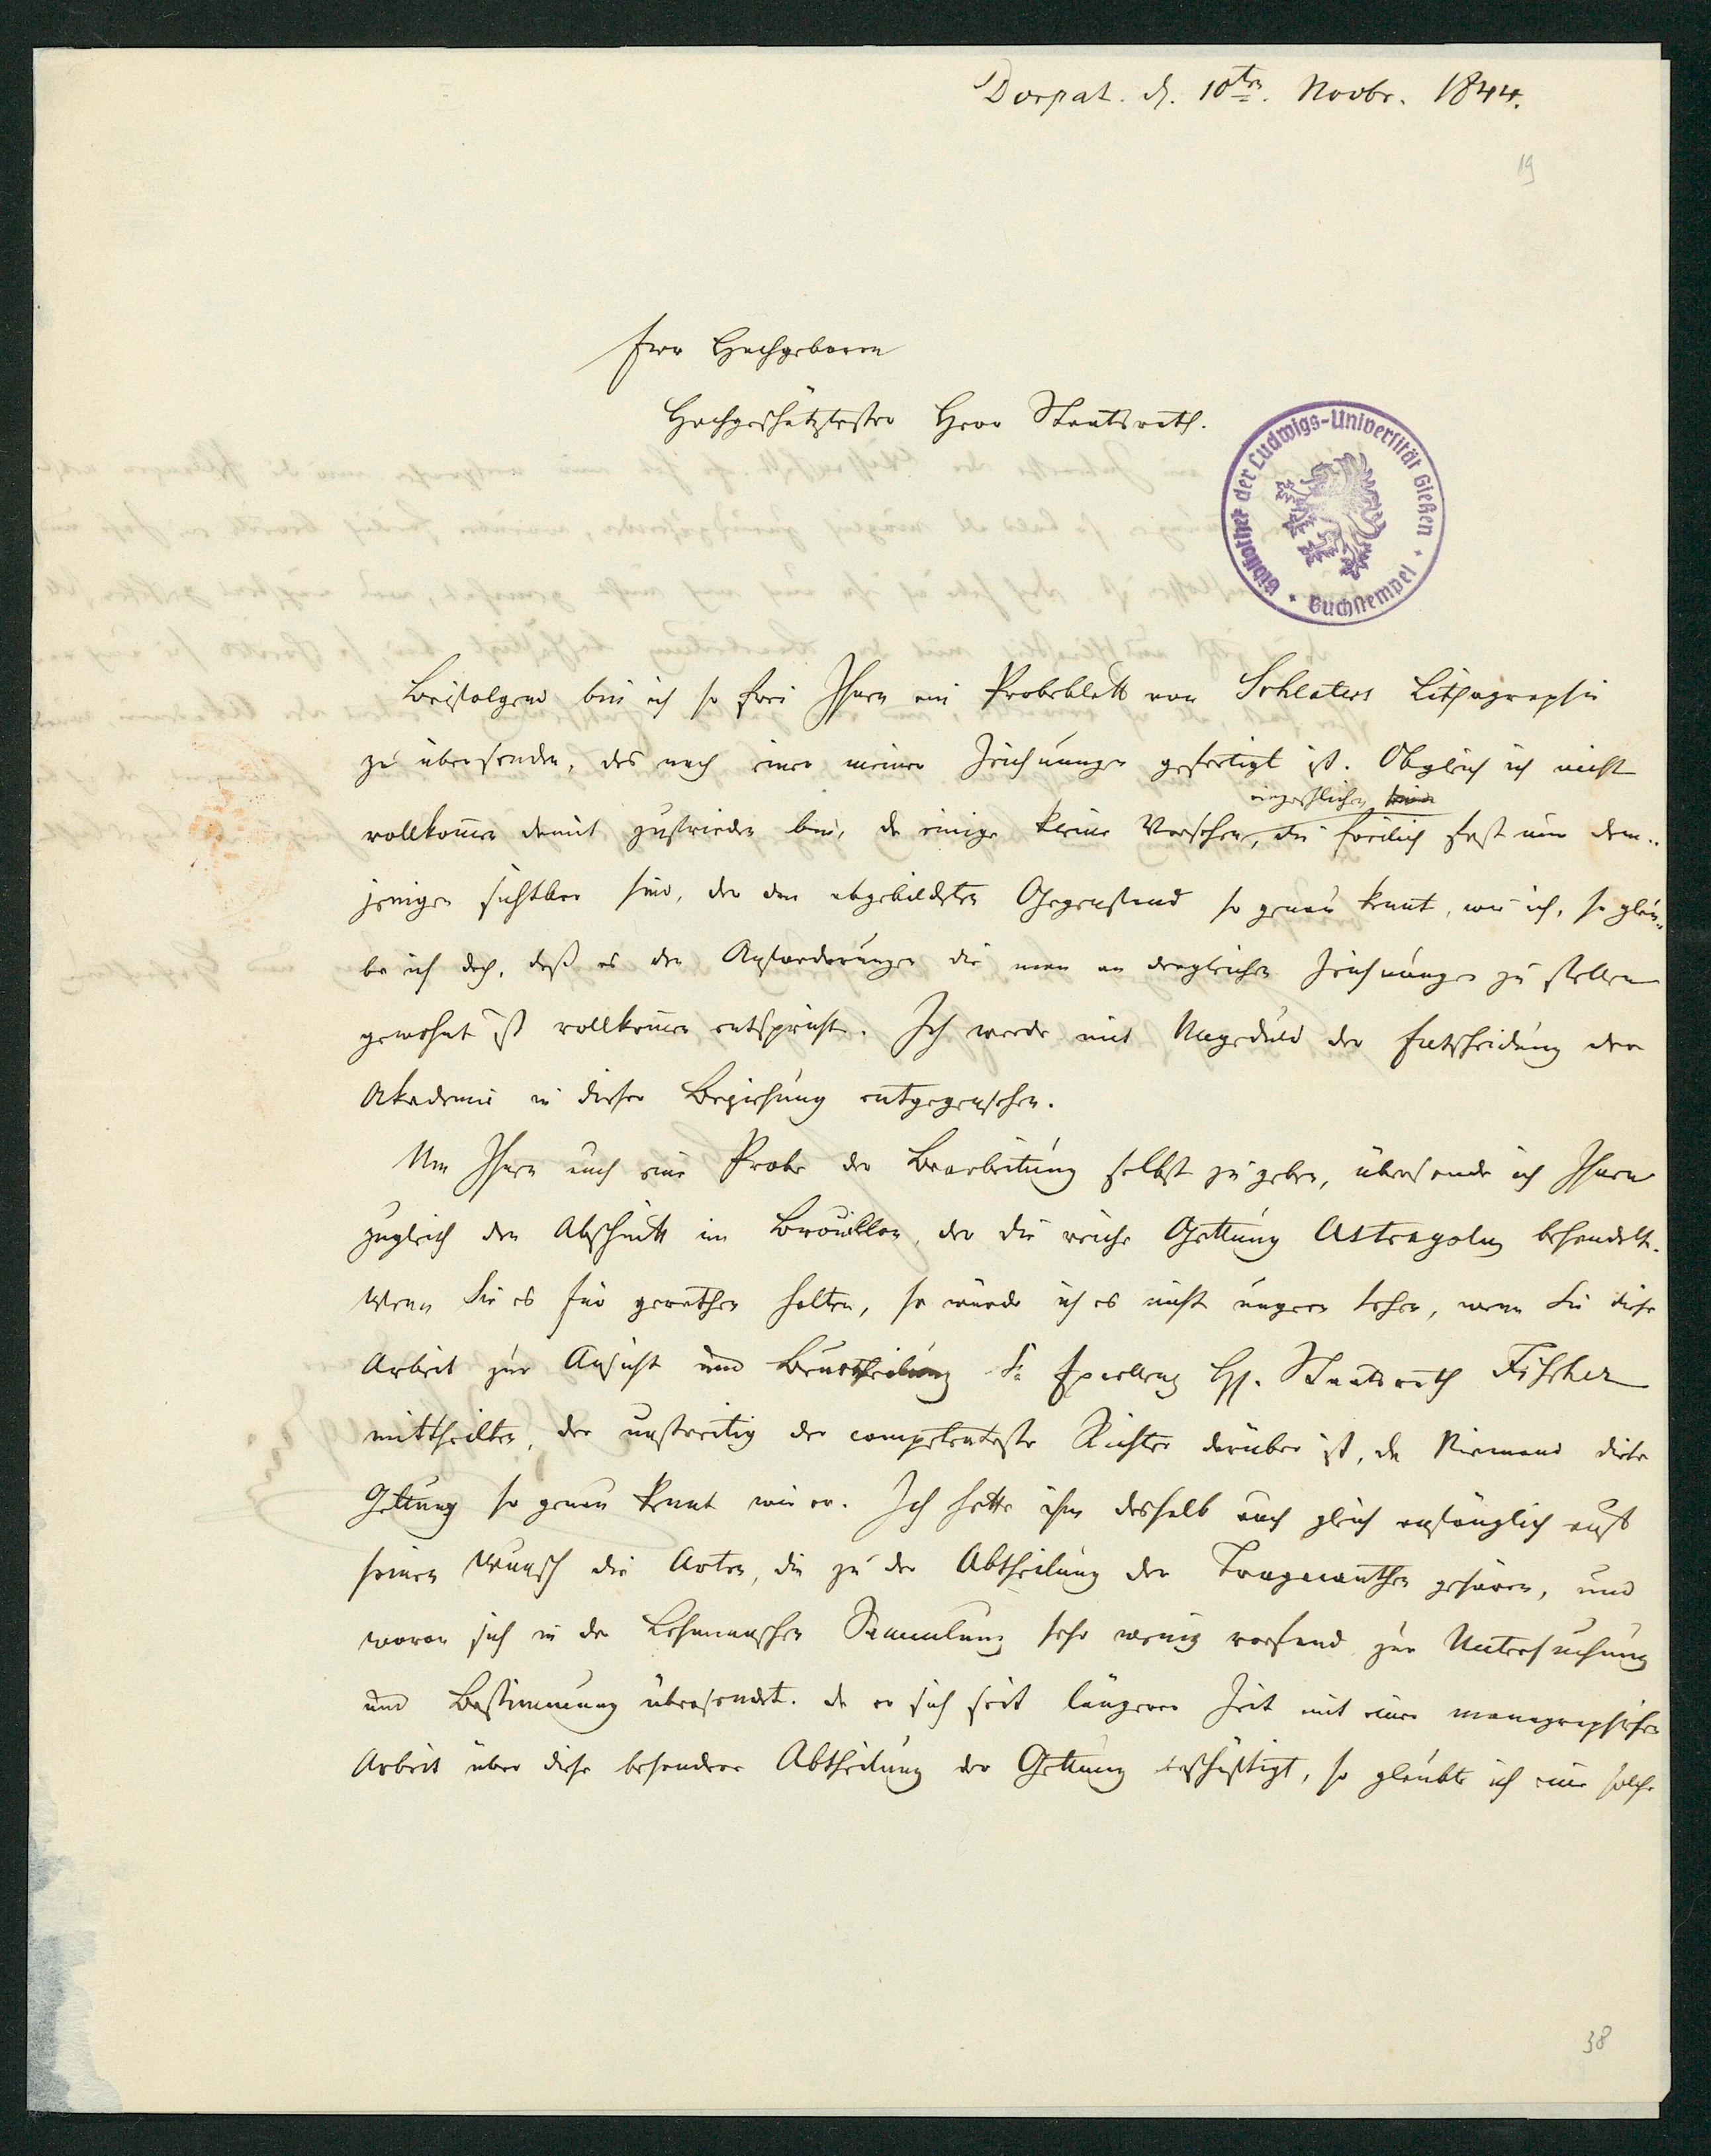 Dorpat. d. 10ten. Novbr. 1844.
19
Ew. Hochgeboren
Hochgeschätztester Herr Staatsrath.
Bibliothek der Ludwigs-Universität Gießen
Buchstempel
Beifolgend bin ich so frei Ihnen ein Probeblatt von Schlaters Lithographie
zu übersenden, das nach einer meiner Zeichnungen gefertigt ist. Obgleich ich nicht
eingeschlichen
vollkom̅en damit zufrieden bin, da einige kleine Versehen, die freilich fast nur dem-
jenigen sichtbar sind, der den abgebildeten Gegenstand so genau kennt, wie ich, so glau-
be ich doch, daß es den Anforderungen die man an dergleichen Zeichnungen zu stellen
gewohnt ist vollkom̅en entspricht. Ich werde mit Ungeduld der Entscheidung der
Akademie in dieser Beziehung entgegensehen.
Um Ihnen auch eine Probe der Bearbeitung selbst zu geben, übersende ich Ihnen
zugleich den Abschnitt im Brouillon, der die reiche Gattung Astragalus behandelt.
Wenn Sie es für gerathen halten, so würde ich es nicht ungern sehen, wenn Sie diese
Arbeit zur Ansicht und Beurtheilung Sr Excellenz H. Staatsrath Fischer
mittheilten, der unstreitig der competenteste Richter darüber ist, da Niemand diese
Gattung so genau kennt wie er. Ich hatte ihm deshalb auch gleich anfänglich auf
seinen Wunsch die Arten, die zu der Abtheilung der Tragacanthen gehören, und
woran sich in der Lehmannschen Sammlung sehr wenig vorfand zur Untersuchung
und Bestimmung übersendet. da er sich seit längerer Zeit mit einer monographischen
Arbeit über diese besondere Abtheilung der Gattung beschäftigt, so glaubte ich eine solche
38